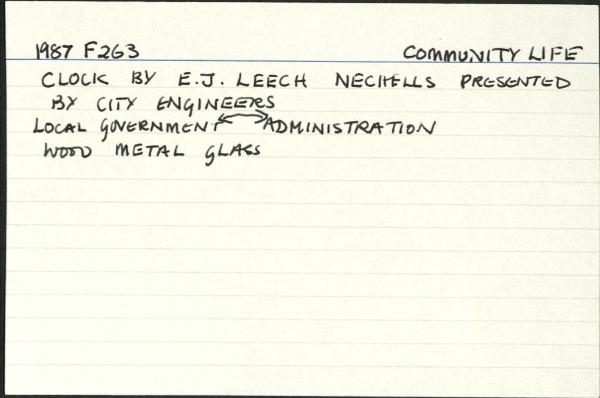 1987 F263 COMMUNITY LIFE
CLOCK BY E.J. LEECH NECHELLS PRESENTED
BY CITY ENGINEERS
LOCAL GOVERNMENT ↔ ADMINISTRATION
WOOD METAL GLASS